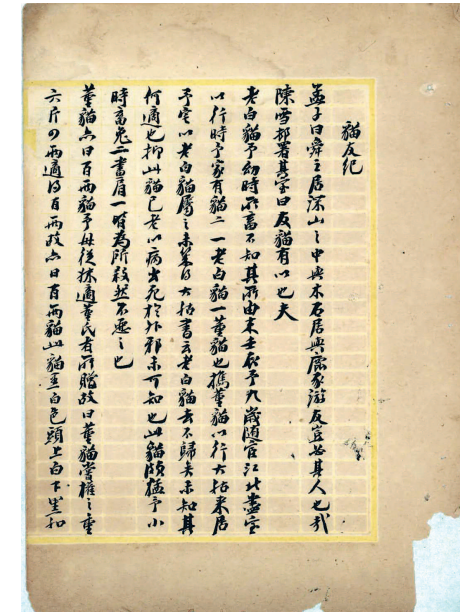 貓友紀
孟子曰舜之居深山之中與木石居與鹿豕游友豈必其人也哉
陳雪邨署其室曰友貓有以也夫
老白貓予幼時所畜不知其所由來壬辰予九歲隨宦江北盡室
以行時予家有貓二一老白貓一董貓也攜董貓以行大抵來居
予室以老白貓屬之未幾得大抵書云老白貓去不歸矣未知其
何適也抑此貓已老以病出死於外邪未可知也此貓頗猛予小
時畜兔二書眉一皆為所殺然不惡之也
董貓亦曰百兩貓予母從妹適董氏者所贈故曰董貓嘗權之重
六斤四兩適得百兩故亦曰百兩貓此貓黑白色頭上白下黑扣